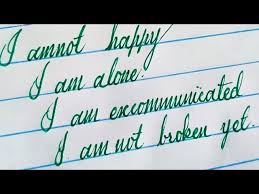 I amnot happy
I am alone.
I am excommunicated
I am not broken yet.